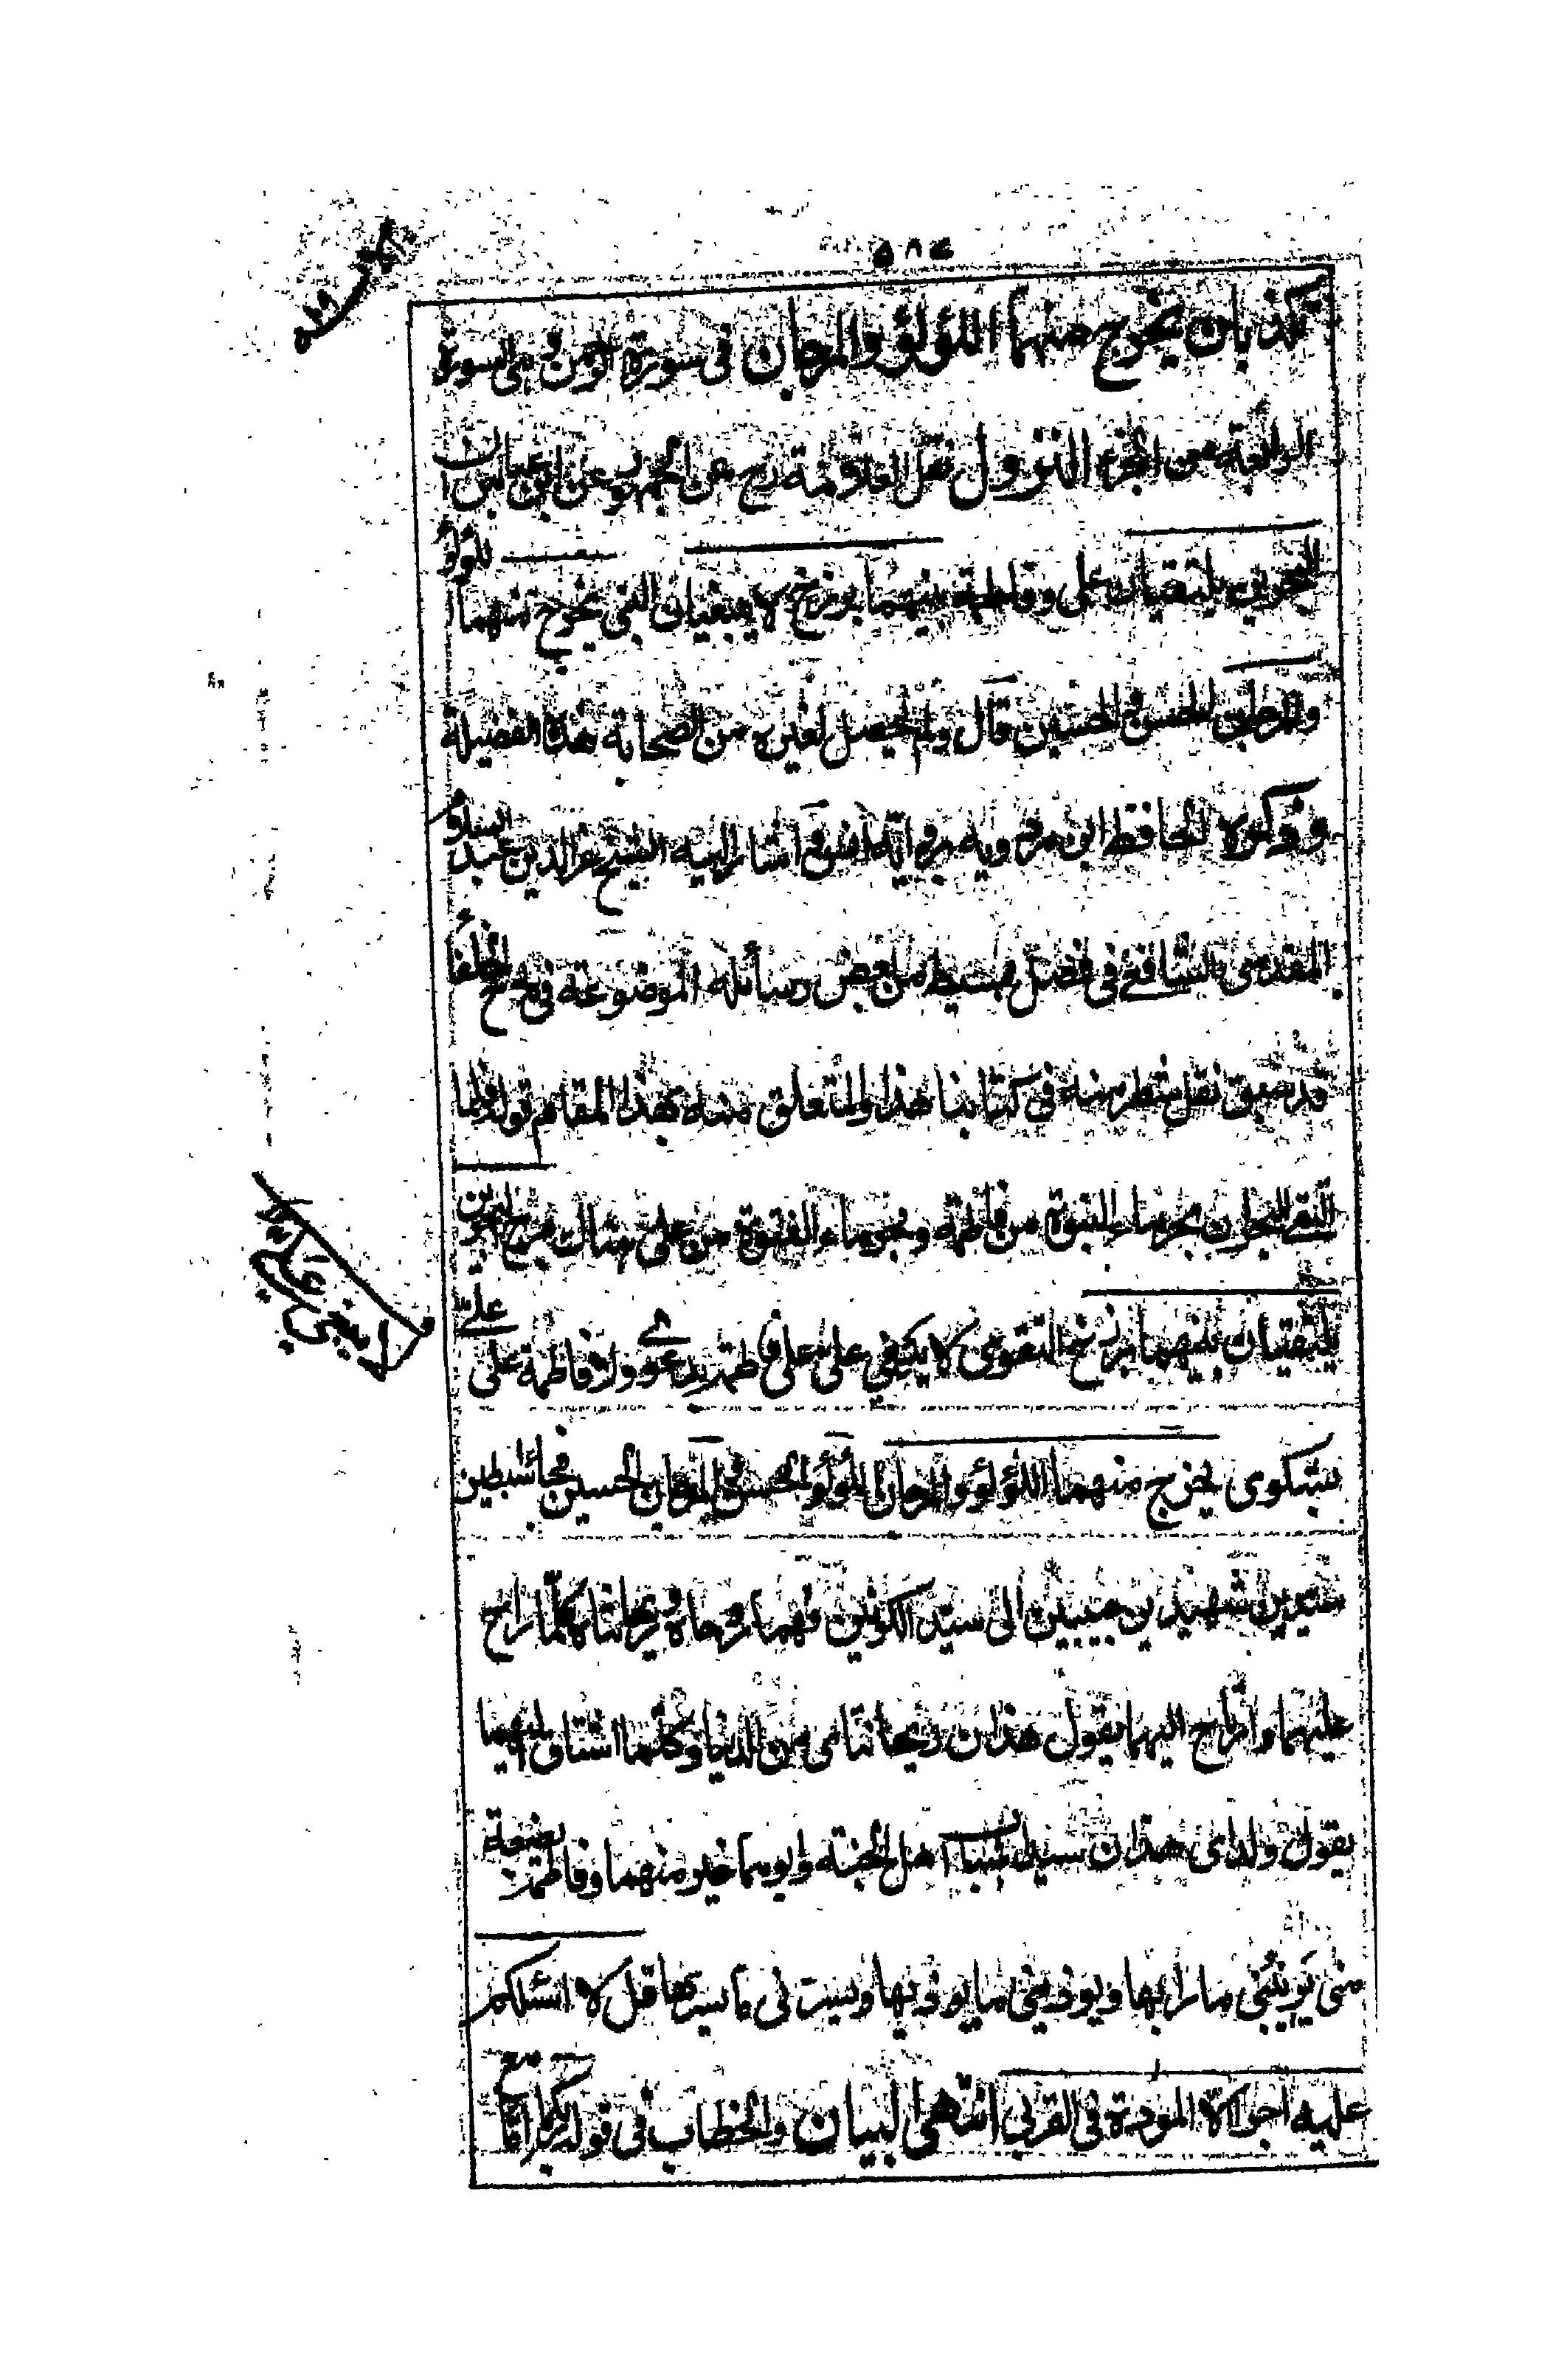 تكذبان يخرج منهما اللؤلؤ والمرجان في سورة الرحمن وهي السورة
الرابعة من الجزء النزول نقل العلامة رح عن الجمهور عن ابن عباس ان
البحرين يلتقيان علي وفاطمة بينهما برزخ لا يبغيان النبي يخرج منهما اللؤلؤ
والمرجان الحسن والحسين قال ولم يحصل لغيره من الصحابة هذه الفضيلة
وذكره الحافظ ابن مردويه واشار اليه الشيخ عز الدين عبد السلام
المقدسي الشافعي في فصل من بعض رسائله الموضوعة في مدح الخلفا
قد سبق نقل شطر منه في كتابنا هذا والمتعلق منه بهذا المقام قوله فلما
التقى البحران بحر ماء النبوة من فاطمة وبحر ماء الفتوة من علي هناك مرج البحرين
يلتقيان بينهما برزخ التقوى لا يبغي علي على فاطمة بدعوى ولا فاطمة على علي
بشكوى يخرج منهما اللؤلؤ والمرجان اللؤلؤ الحسن والمرجان الحسين فجا سبطين
سيدين شهيدين حبيبين الى سيد الكونين فهما روحاه وريحانتاه كلما راح
عليهما وارتاح اليهما يقول هذان ريحانتاي من الدنيا وكلما اشتاق اليهما
يقول ولداي هذان سيدا شباب اهل الجنة وابوهما خير منهما وفاطمة بضعة
مني يريبني ما رابها ويوذيني ما يوذيها ويسرني ما يسرها قل لا اسئلكم
عليه اجرا الا المودة في القربى انتهى البيان والخطاب في قوله